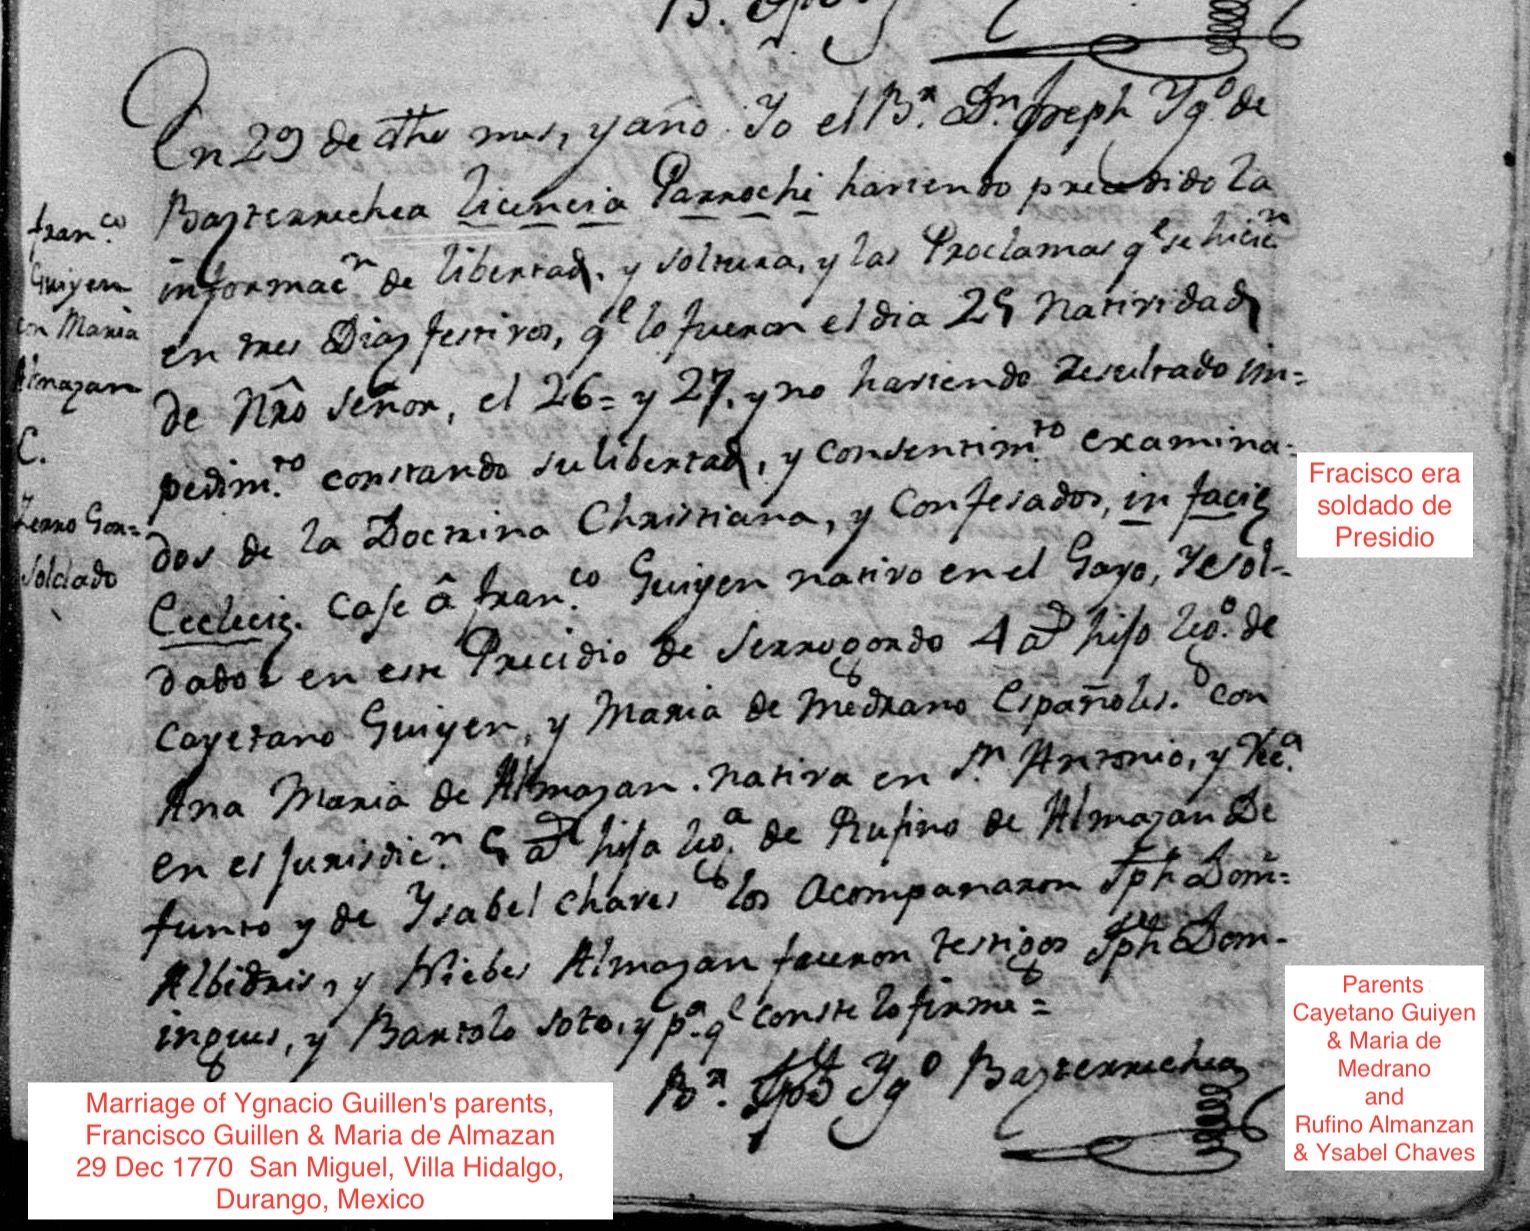 B.
En 29 de dho mes, y año. Yo el B.r D.n Joseph Yg.o de
Bazterrechea licencia Parrochi haviendo precedido la
informac.n de libertad, y soltura, y las Proclamas q.e se hicier.n
en tres Diaz festivos, q.e lo fueron el dia 25 Natividad
de Nro Señor, el 26= y 27. y no haviendo resultado im=
pedim.to constando su libertad, y consentim.to examina-
dos de la Doctrina Christiana, y Confesados, in facie
Eccleciæ. Case â Fran.co Guiyen nativo en el Gayo, Yesol-
dado en este Precidio de Serrogordo 4 ad hijo leg.o de
Cayetano Guiyen, y Maria de Medrano Españoles. con
Ana Maria de Almazan. nativa en S.n Antonio, y Vec.a
en es Jurisdic.n 5 ad hija leg.a de Rufino de Almazan De
funto y de Ysabel Chaves los Acompanaron Jph Dom=
Albidris, y Niebes Almazan fueron testigos Jph Dom-
ingues, y Bartolo Soto, y p.a q.e conste lo firme=
B.r Jph Yg.o Bazterrechea
Fran.co
Guiyen
con Maria
Almazan
C.
Zerro Gor=
Soldado
Fracisco era
soldado de
Presidio
Parents
Cayetano Guiyen
& Maria de
Medrano
and
Rufino Almanzan
& Ysabel Chaves
Marriage of Ygnacio Guillen's parents,
Francisco Guillen & Maria de Almazan
29 Dec 1770 San Miguel, Villa Hidalgo,
Durango, Mexico